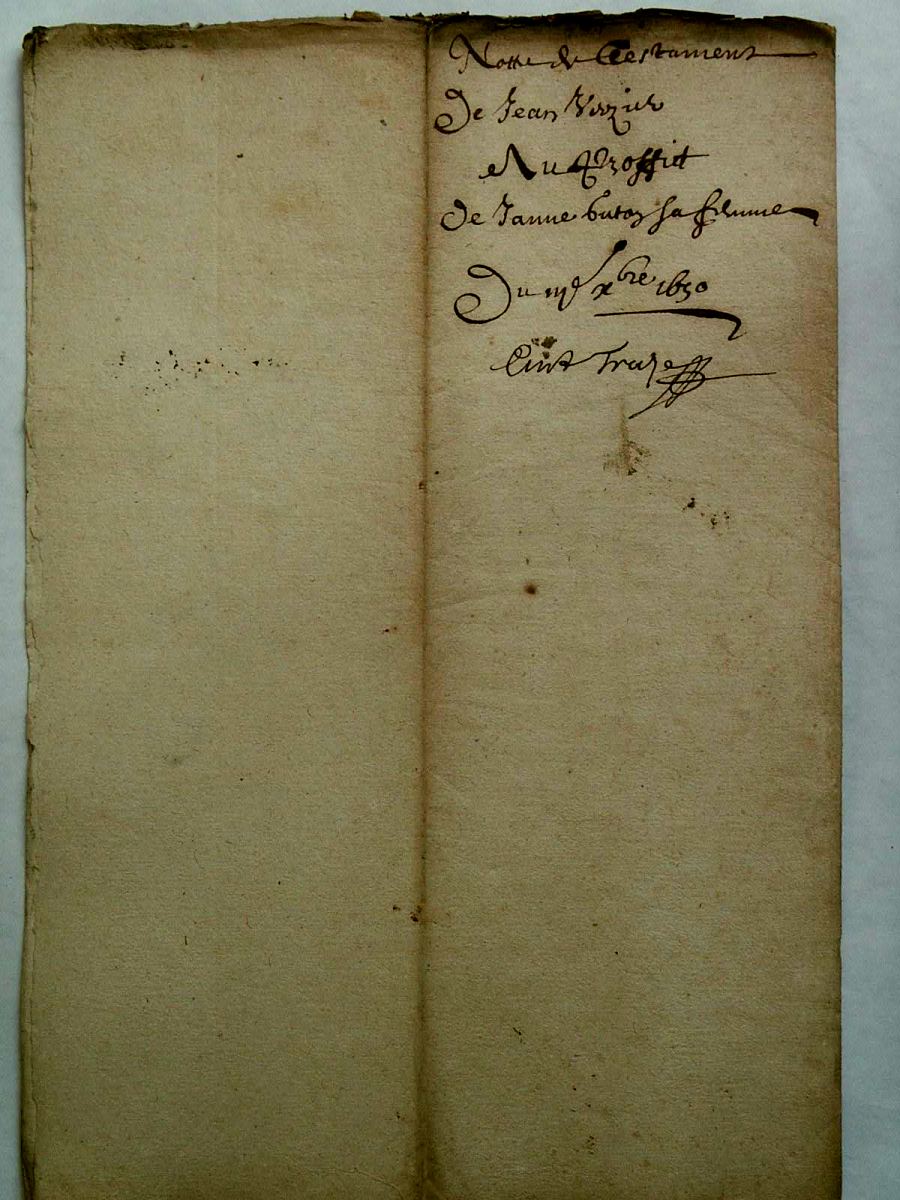 Notte de Testament
De Jean
Au Proffit
De Janne buton sa femme
Du iiję xbre 1650